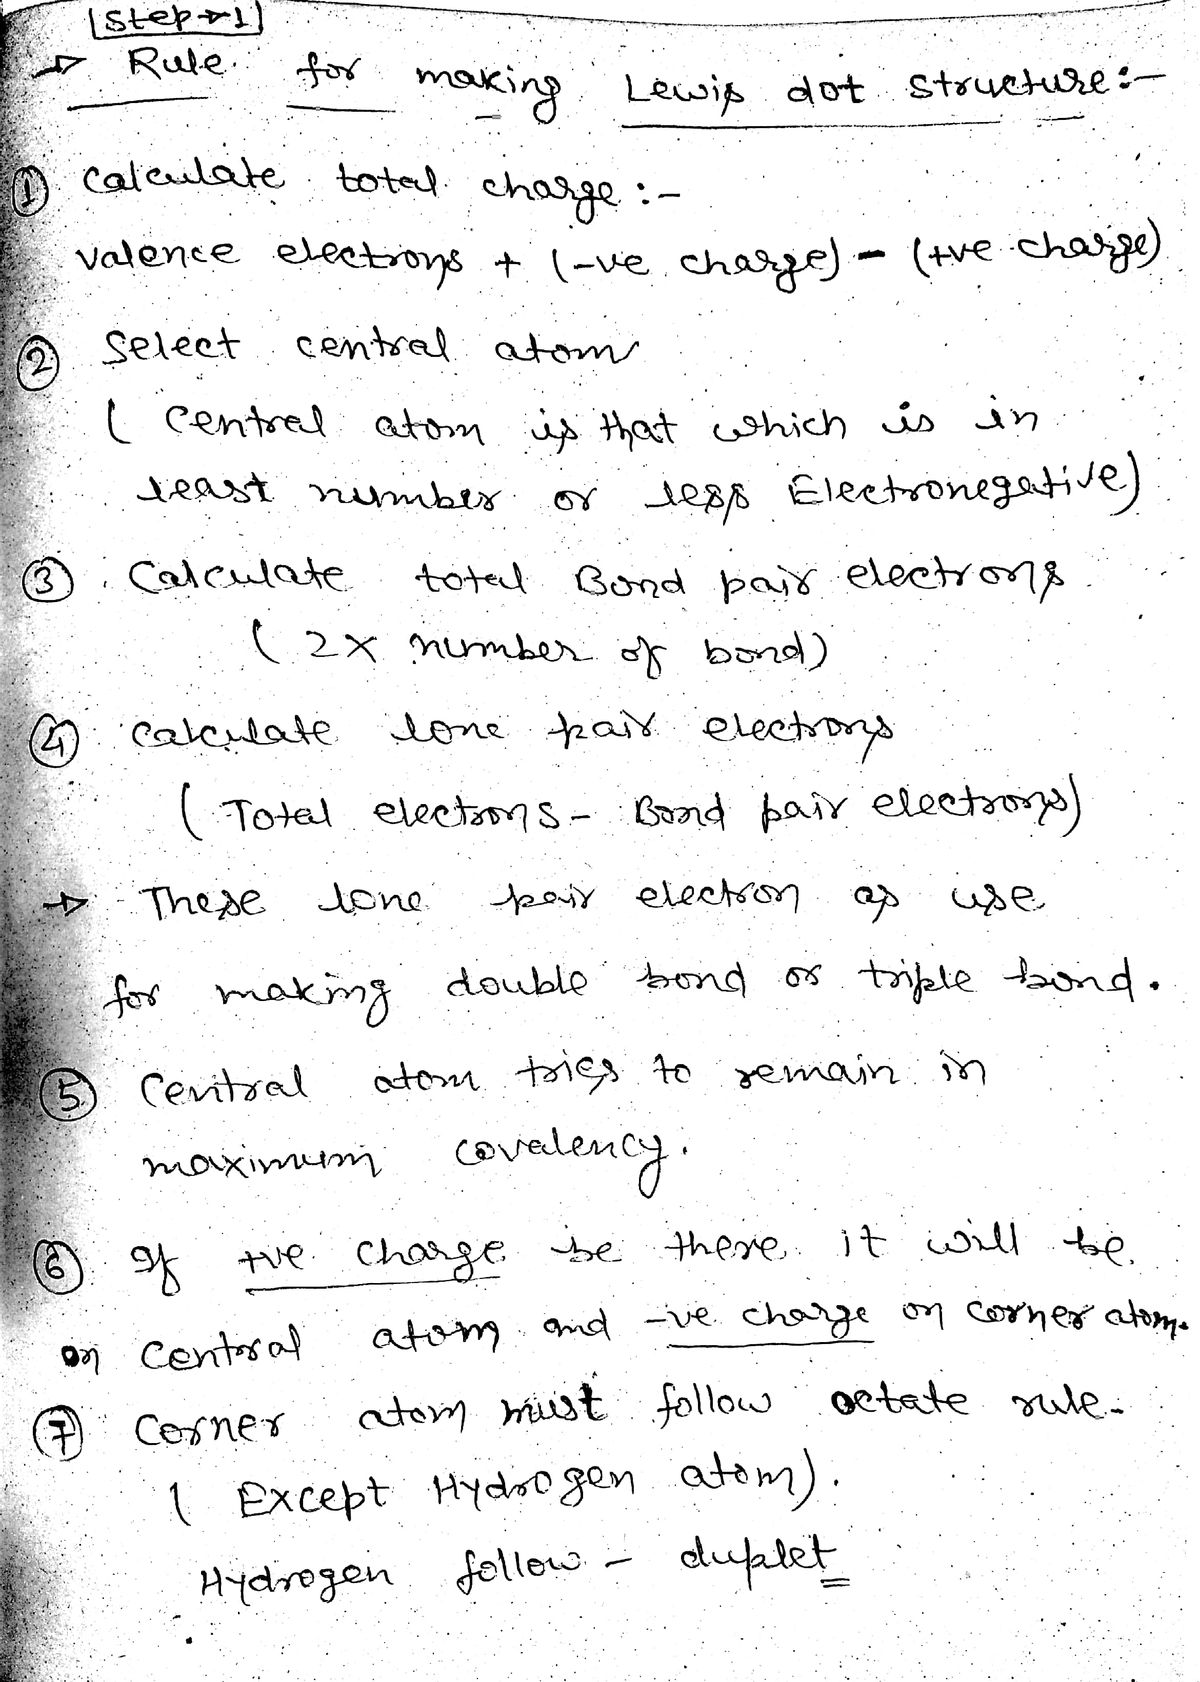 Step → 1
→ Rule for making Lewis dot structure :-
① Calculate total charge :-
valence electrons + (-ve charge) - (+ve charge)
② Select central atom
( Central atom is that which is in
least number or less Electronegative)
③ Calculate total Bond pair electrons
( 2x number of bond)
④ Calculate lone pair electrons
( Total electrons - Bond pair electrons)
→ These lone pair electron as use
for making double bond or triple bond.
⑤ Central atom tries to remain in
maximum covalency.
⑥ If +ve charge be there it will be
on central atom and -ve charge on corner atom.
⑦ Corner atom must follow octate rule.
( Except Hydrogen atom).
Hydrogen follow - duplet